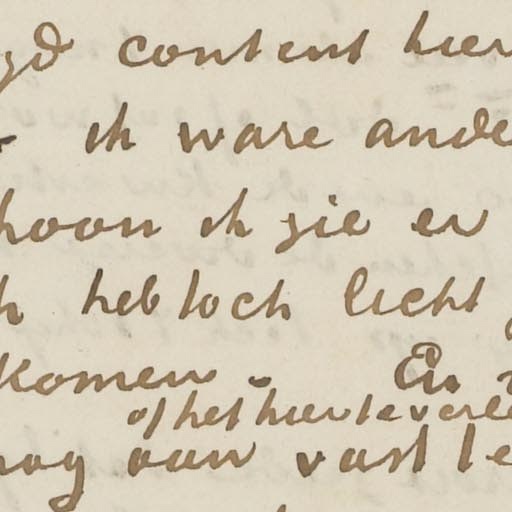 content hier
ik ware ande
hoon ik zie er
heb toch licht
komen. En
of het hier te verle
nog aan vast te